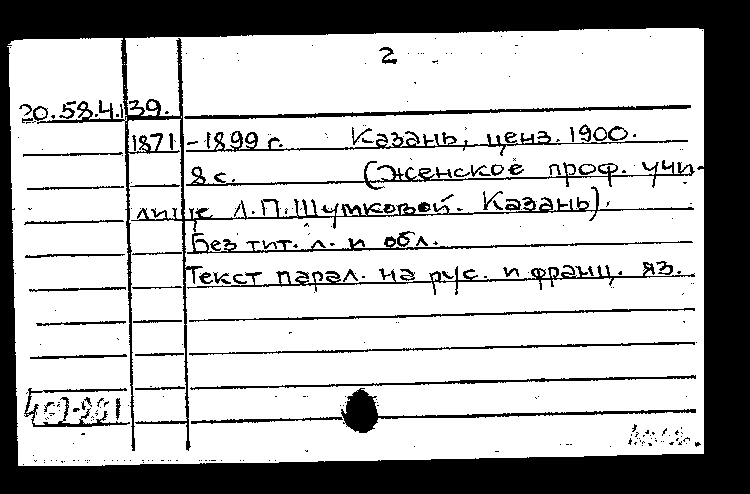 2
20.58.4.139.
1871-1899 г. Казань, ценз. 1900.
8 с. (Женское проф. учи-
лище Л.П.Шумковой. Казань).
Без тит. л. и обл.
Текст парал. на рус. и франц. яз.